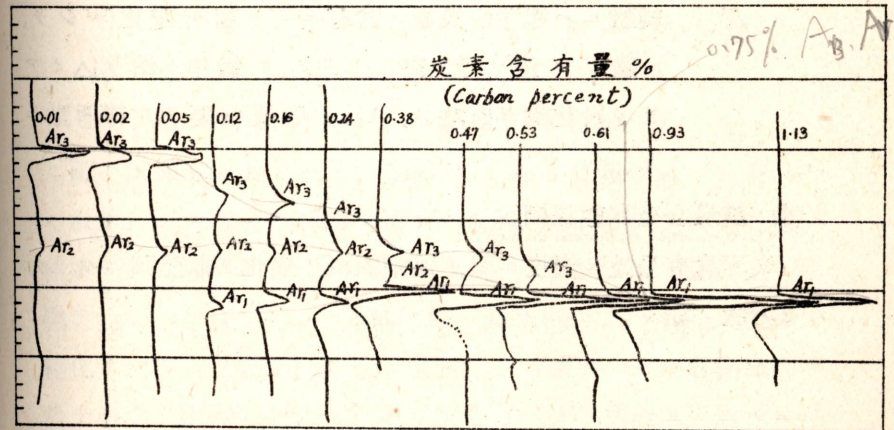 炭素含有量 %
(Carbon percent)
0.75%
0.01 0.02 0.05 0.12 0.16 0.24 0.38 0.47 0.53 0.61 0.93 1.13
Ar3 Ar3 Ar3
Ar3 Ar3
Ar3
Ar2 Ar2 Ar2 Ar2 Ar2 Ar2 Ar3 Ar3
Ar2 Ar3
Ar1 Ar1 Ar1 Ar1
Ar1 Ar1 Ar1 Ar1 Ar1